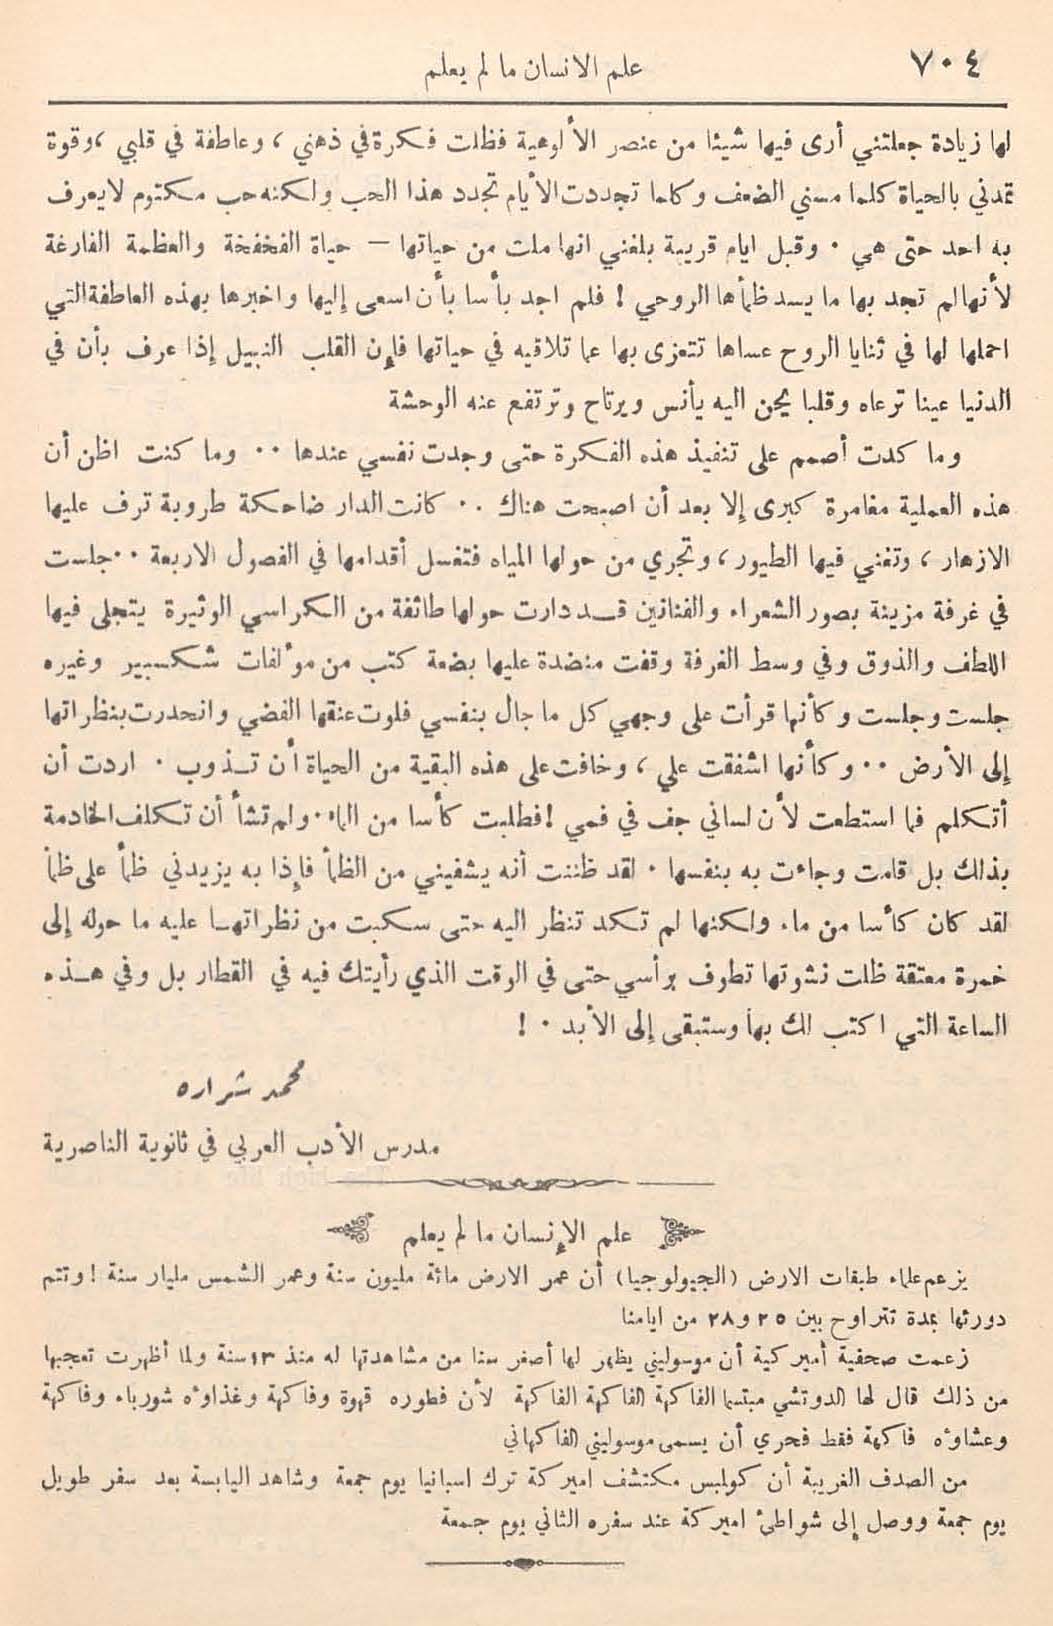 ٧٠٤
علم الانسان ما لم يعلم
لها زيادة جعلتني أرى فيها شيئا من عنصر الألوهية فظلت فكرة في ذهني ، وعاطفة في قلبي ، وقوة
تمدني بالحياة كلما مسني الضعف وكلما تجددت الأيام تجدد هذا الحب ولكنه حب مكتوم لا يعرف
به احد حتى هي . وقبل ايام قريبة بلغني انها ملت من حياتها – حياة الفخفخة والعظمة الفارغة
لأنها لم تجد بها ما يسد ظمأها الروحي ! فلم اجد بأسا بأن اسعى إليها واخبرها بهذه العاطفة التي
احملها لها في ثنايا الروح عساها تتعزى بها عما تلاقيه في حياتها فإن القلب النبيل إذا عرف بأن في
الدنيا عينا ترعاه وقلبا يحن اليه يأنس ويرتاح وترتفع عنه الوحشة
وما كدت أصمم على تنفيذ هذه الفكرة حتى وجدت نفسي عندها .. وما كنت اظن أن
هذه العملية مغامرة كبرى إلا بعد أن اصبحت هناك .. كانت الدار ضاحكة طروبة ترف عليها
الازهار ، وتغني فيها الطيور ، وتجري من حولها المياه فتغسل أقدامها في الفصول الاربعة .. جلست
في غرفة مزينة بصور الشعراء والفنانين قد دارت حولها طائفة من الكراسي الوثيرة يتجلى فيها
اللطف والذوق وفي وسط الغرفة وقفت منضدة عليها بضعة كتب من مؤلفات شكسبير وغيره
جلست وجلست وكأنها قرأت على وجهي كل ما جال بنفسي فلوت عنقها الفضي وانحدرت بنظراتها
إلى الأرض .. وكأنها اشفقت علي ، وخافت على هذه البقية من الحياة أن تذوب . اردت أن
أتكلم فما استطعت لأن لساني جف في فمي ! فطلبت كأسا من الماء . ولم تشأ أن تكلف الخادمة
بذلك بل قامت وجاءت به بنفسها . لقد ظننت أنه يشفيني من الظمأ فإذا به يزيدني ظمأ على ظمأ
لقد كان كأسا من ماء ولكنها لم تكد تنظر اليه حتى سكبت من نظراتها عليه ما حوله إلى
خمرة معتقة ظلت نشوتها تطوف برأسي حتى في الوقت الذي رأيتك فيه في القطار بل وفي هذه
الساعة التي اكتب لك بها وستبقى إلى الأبد . !
محمد شراره
مدرس الأدب العربي في ثانوية الناصرية
علم الإنسان ما لم يعلم
يزعم علماء طبقات الارض (الجيولوجيا) أن عمر الارض مائة مليون سنة وعمر الشمس مليار سنة ! وتتم
دورتها بمدة تتراوح بين ٢٥ و٢٨ من ايامنا
زعمت صحفية أميركية أن موسوليني يظهر لها أصغر سنا من مشاهدتها له منذ ١٣ سنة ولما أظهرت تعجبها
من ذلك قال لها الدوتشي مبتسما الفاكهة الفاكهة الفاكهة لأن فطوره قهوة وفاكهة وغذاؤه شورباء وفاكهة
وعشاؤه فاكهة فقط فحري أن يسمى موسوليني الفاكهاني
من الصدف الغريبة أن كولمبس مكتشف اميركة ترك اسبانيا يوم جمعة وشاهد اليابسة بعد سفر طويل
يوم جمعة ووصل إلى شواطئ اميركة عند سفره الثاني يوم جمعة